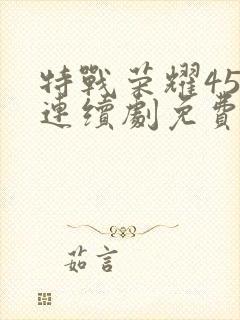 特戰荣耀45
連續劇免費
茹言